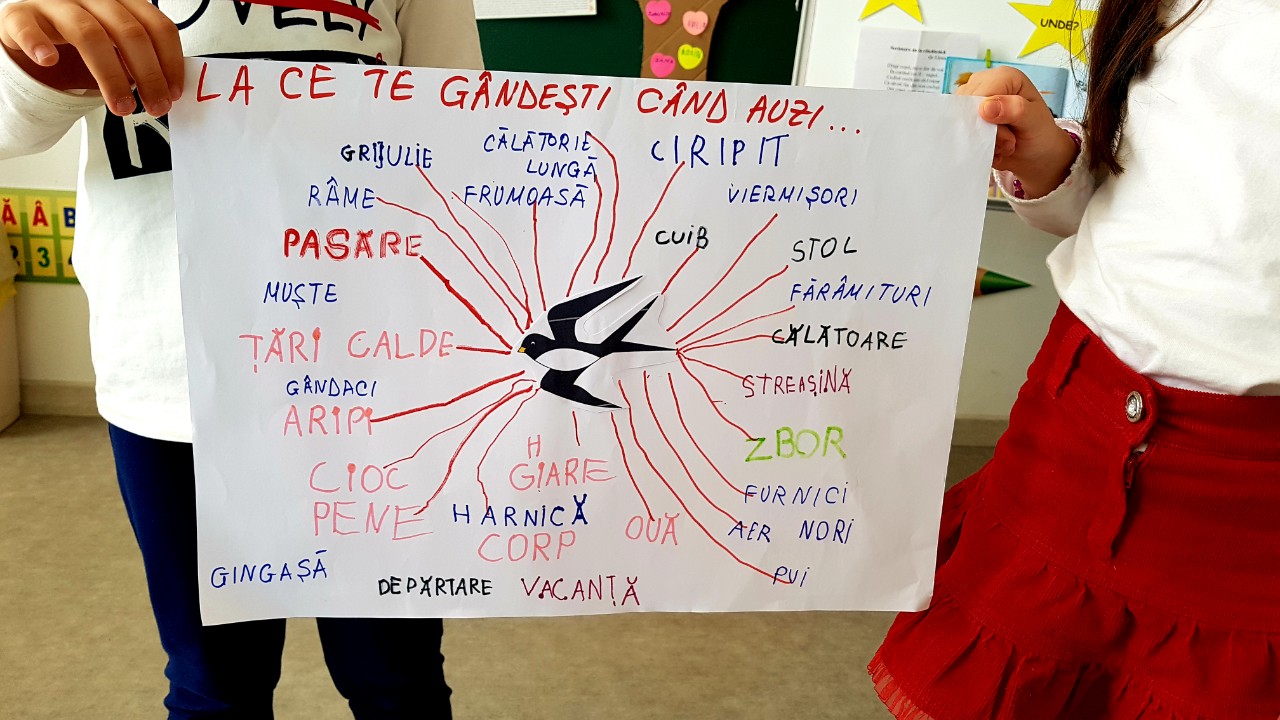 LOVELY
UNDE?
LA CE TE GÂNDEȘTI CÂND AUZI...
GRIJULIE
CĂLĂTORIE
LUNGĂ
CIRIPIT
RÂME
FRUMOASĂ
VIERMIȘORI
PASĂRE
CUIB
STOL
MUȘTE
FĂRÂMITURI
ȚĂRI CALDE
CĂLĂTOARE
GÂNDACI
STREAȘINĂ
ARIPI
ZBOR
CIOC
GHIARE
FURNICI
PENE
HARNICĂ
OUĂ
AER NORI
CORP
GINGAȘĂ
DEPĂRTARE
VACANȚĂ
PUI
Ă Â B
2 3 4